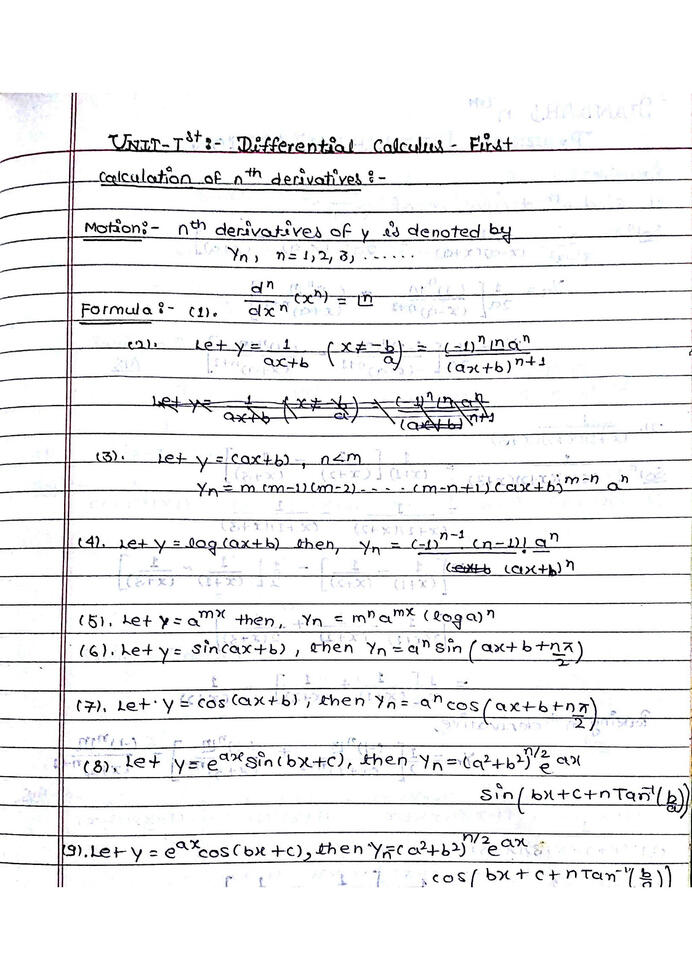 UNIT-Ist:- Differential Calculus - First
Calculation of nth derivatives:-
Motion:- nth derivatives of y is denoted by
Yn, n=1,2,3,.......
Formula:- (1). dⁿ/dxⁿ (xⁿ) = |n
(2). Let y = 1/(ax+b) (x ≠ -b/a) = (-1)ⁿ |n aⁿ/(ax+b)ⁿ⁺¹
(3). Let y = (ax+b), n<m
Yn = m(m-1)(m-2)-....(m-n+1)(ax+b)ᵐ⁻ⁿ aⁿ
(4). Let y = log(ax+b) then, Yn = (-1)ⁿ⁻¹ . (n-1)! aⁿ/(ax+b)ⁿ
(5). Let y = aᵐˣ then, Yn = mⁿ aᵐˣ (log a)ⁿ
(6). Let y = sin(ax+b), then Yn = aⁿ sin(ax+b+nπ/2)
(7). Let y = cos(ax+b), then Yn = aⁿ cos(ax+b+nπ/2)
(8). Let y = eᵃˣ sin(bx+c), then Yn = (a²+b²)ⁿ/² eᵃˣ
sin(bx+c+n Tan⁻¹(b/a))
(9). Let y = eᵃˣ cos(bx+c), then Yn = (a²+b²)ⁿ/² eᵃˣ
cos(bx+c+n Tan⁻¹(b/a))